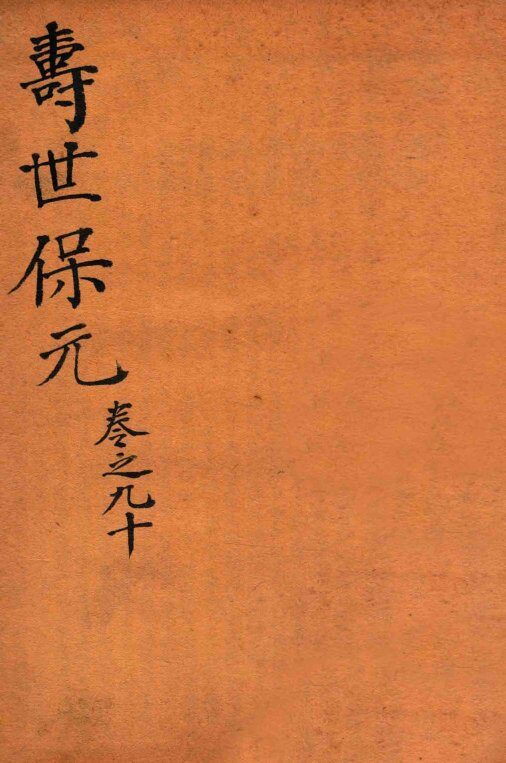 壽世保元
卷之九十